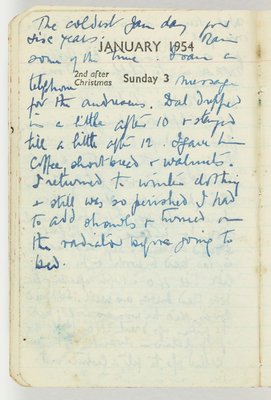 The coldest Jan day for
six years. Rain
JANUARY 1954
some of the time. Took a
2nd after
Christmas
Sunday 3
telephone message
for the Andreams. Dad dropped
in a little after 10 & stayed
till a little after 12. I gave him
coffee, short bread & walnuts.
I returned to winter clothing
& still was so perished I had
to add shawls & turned on
the radiator before going to
bed.